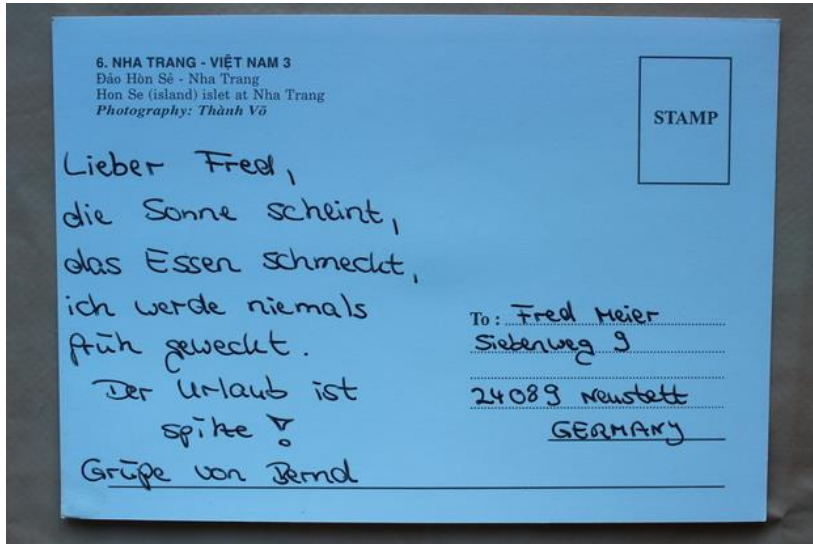 6. NHA TRANG - VIỆT NAM 3
Đảo Hòn Sẽ - Nha Trang
Hon Se (island) islet at Nha Trang
Photography: Thành Võ
STAMP
Lieber Fred,
die Sonne scheint,
das Essen schmeckt,
ich werde niemals
früh geweckt.
Der Urlaub ist
spitze!
Grüße von Bernd
To: Fred Meier
Siebenweg 9
24089 Neustett
GERMANY